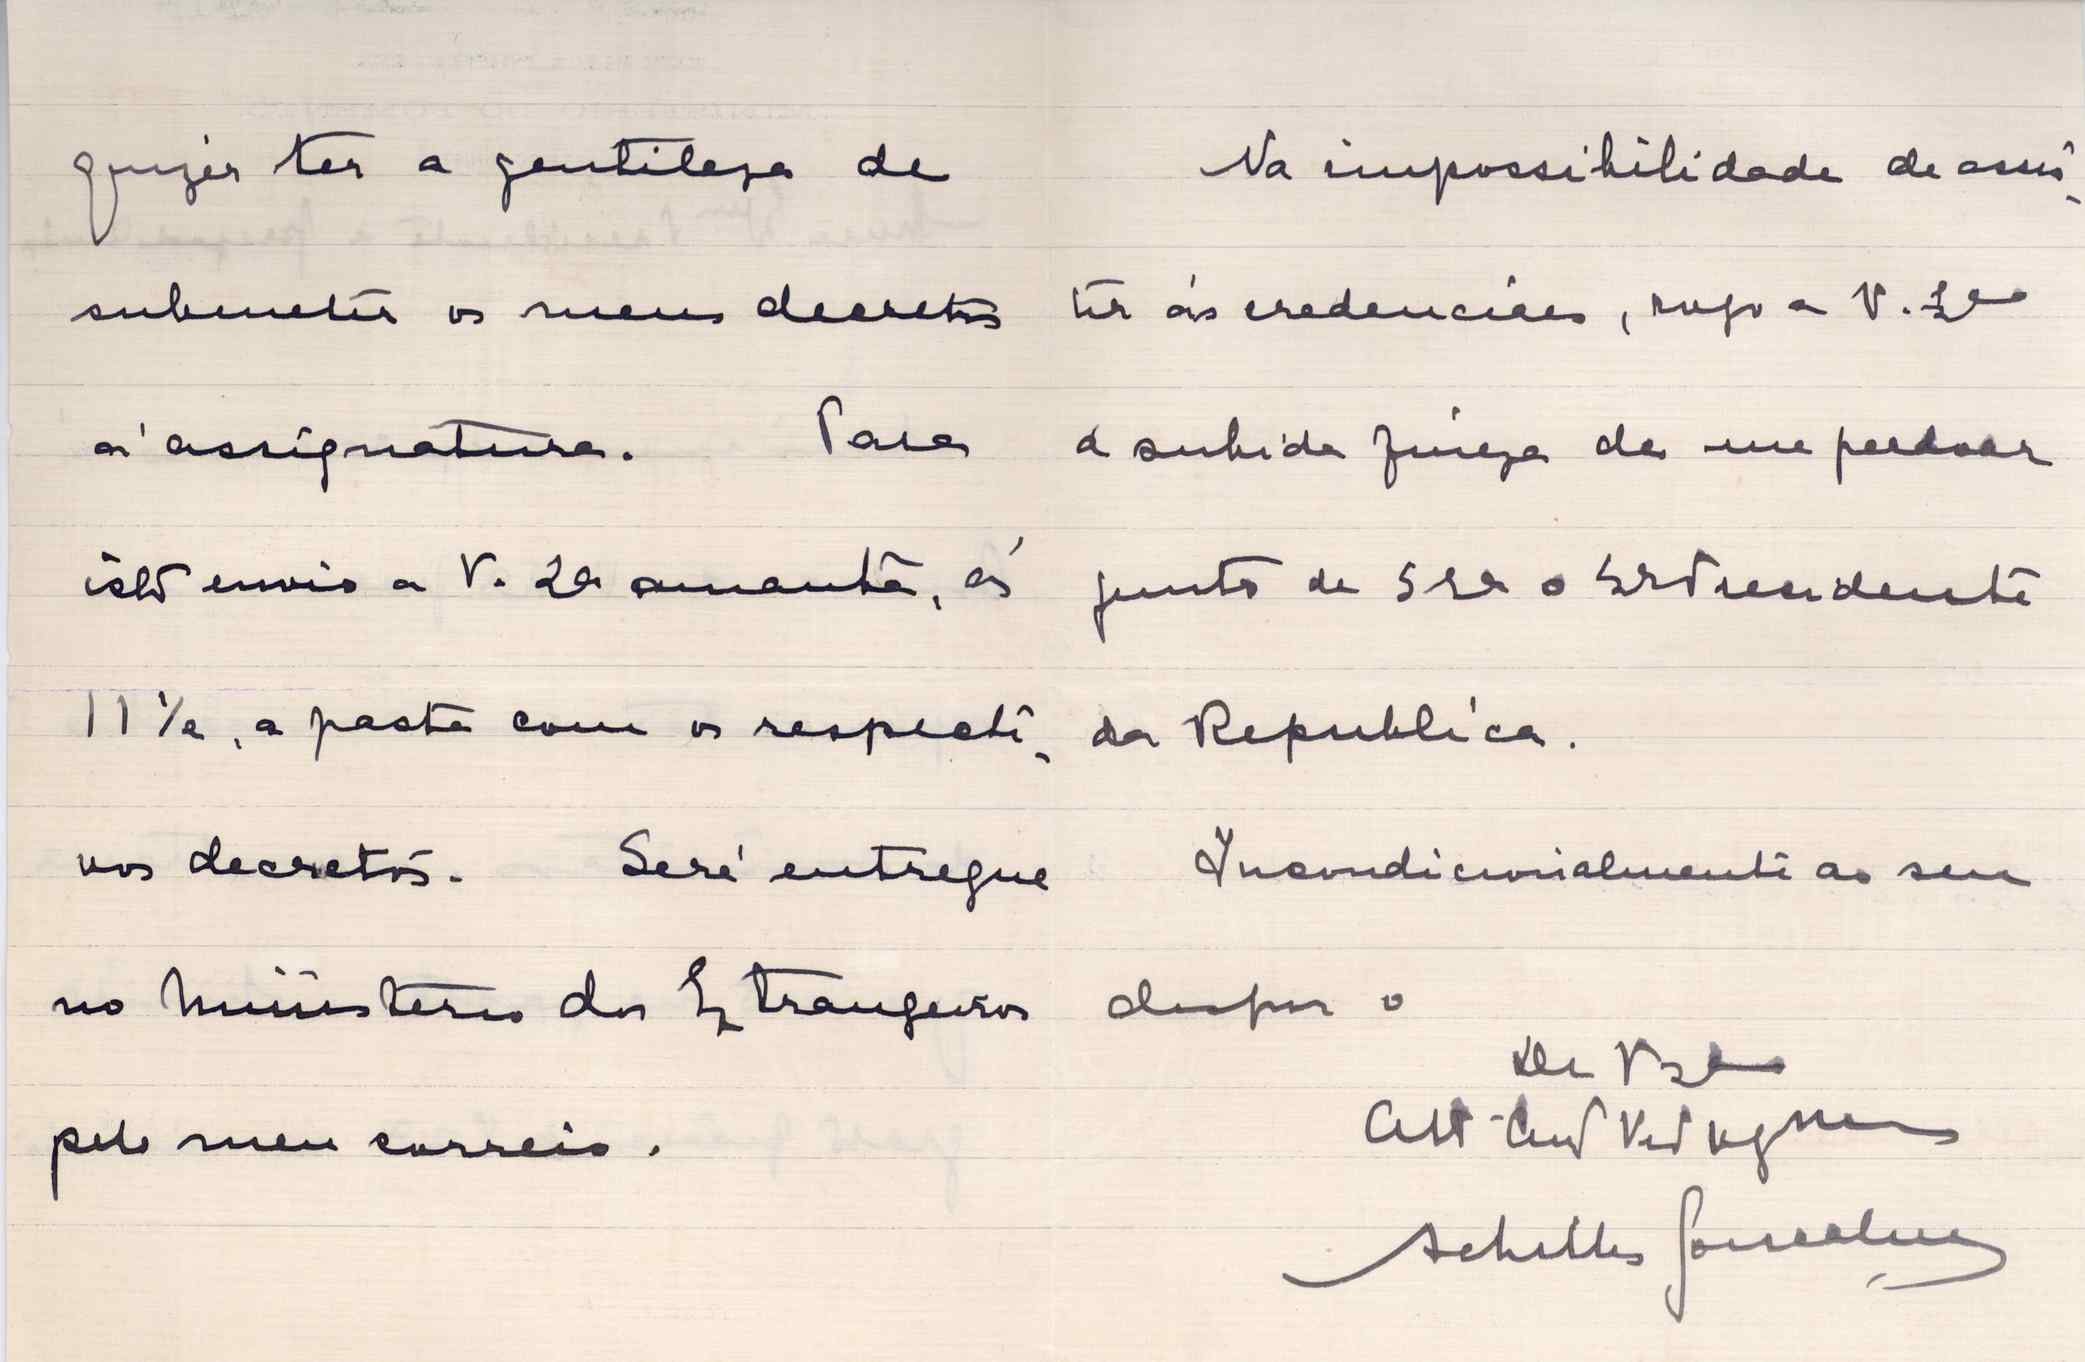 quizér ter a gentileza de
submeter os meus decretos
á assignatura. Para
isto envio a V. Exª amanhã, ás
11 ½, a pasta com os respecti-
vos decretos. Será entregue
no Ministerio dos Extrangeiros
pelo meu correio.
Na impossibilidade de assis-
tir ás credenciáes, rogo a V. Exª
a subida fineza de me perdoar
junto de S Exª o Sr Presidente
da Republica.
Incondicionalmente ao seu
dispor o
De V Exª
Attº Vor
Achilles Gonçalves